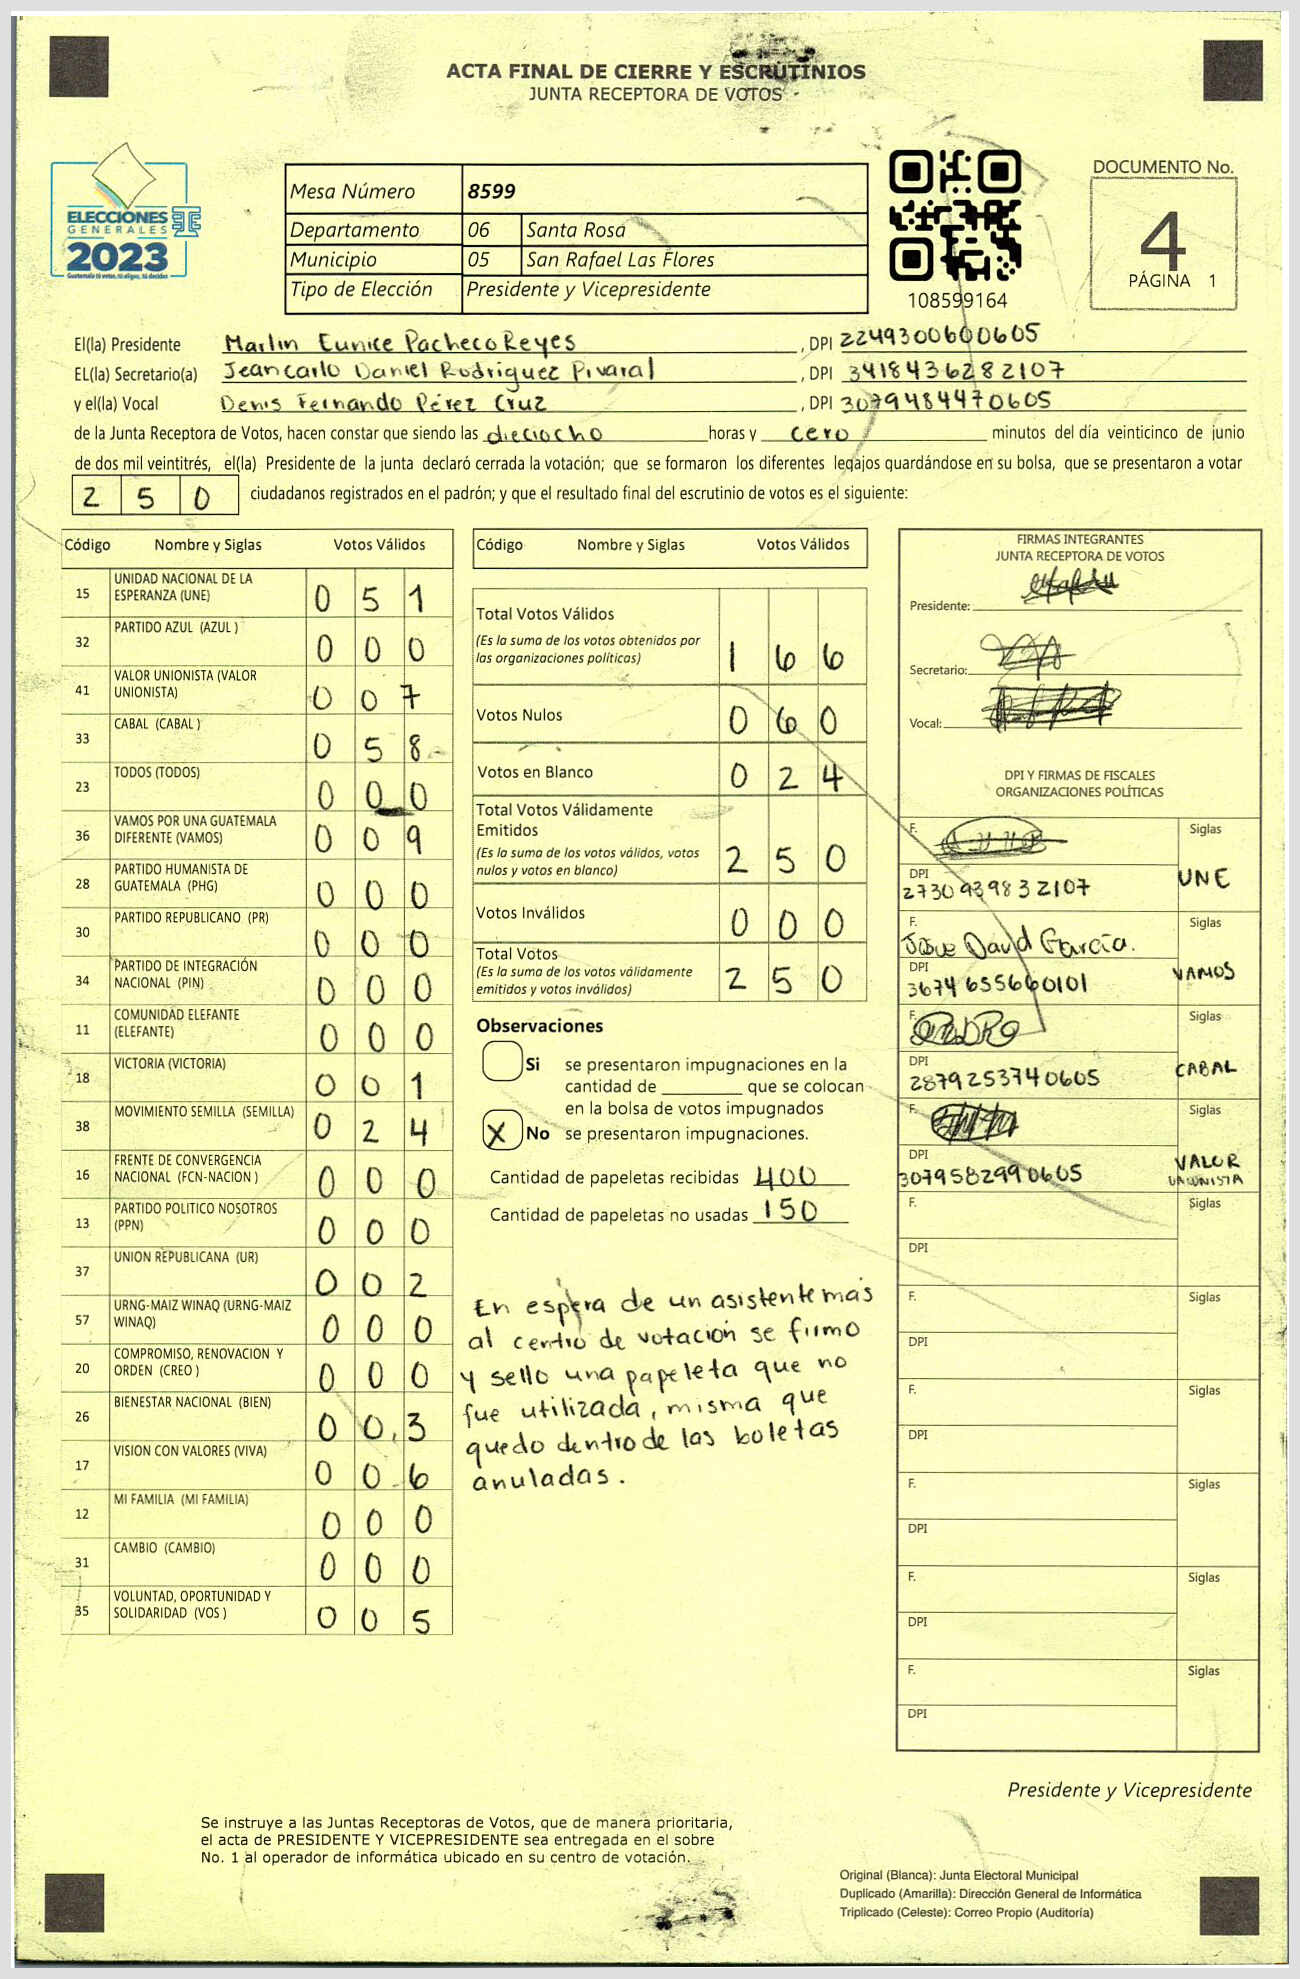 ACTA FINAL DE CIERRE Y ESCRUTINIOS
JUNTA RECEPTORA DE VOTOS
ELECCIONES
GENERALES
2023
Guatemala tú votas, tú eliges, tú decides
Mesa Número 8599
Departamento 06 Santa Rosa
Municipio 05 San Rafael Las Flores
Tipo de Elección Presidente y Vicepresidente
108599164
DOCUMENTO No.
4
PÁGINA 1
El(la) Presidente Marlin Eunice Pacheco Reyes, DPI 2249300600605
EL(la) Secretario(a) Jeancarlo Daniel Rodriguez Pivaral, DPI 3418436282107
y el(la) Vocal Denis Fernando Pérez Cruz, DPI 3079484470605
de la Junta Receptora de Votos, hacen constar que siendo las dieciocho horas y cero minutos del día veinticinco de junio
de dos mil veintitrés, el(la) Presidente de la junta declaró cerrada la votación; que se formaron los diferentes legajos guardándose en su bolsa, que se presentaron a votar
2 5 0 ciudadanos registrados en el padrón; y que el resultado final del escrutinio de votos es el siguiente:
Código Nombre y Siglas Votos Válidos
15 UNIDAD NACIONAL DE LA ESPERANZA (UNE) 0 5 1
32 PARTIDO AZUL (AZUL ) 0 0 0
41 VALOR UNIONISTA (VALOR UNIONISTA) 0 0 7
33 CABAL (CABAL ) 0 5 8
23 TODOS (TODOS) 0 0 0
36 VAMOS POR UNA GUATEMALA DIFERENTE (VAMOS) 0 0 9
28 PARTIDO HUMANISTA DE GUATEMALA (PHG) 0 0 0
30 PARTIDO REPUBLICANO (PR) 0 0 0
34 PARTIDO DE INTEGRACIÓN NACIONAL (PIN) 0 0 0
11 COMUNIDAD ELEFANTE (ELEFANTE) 0 0 0
18 VICTORIA (VICTORIA) 0 0 1
38 MOVIMIENTO SEMILLA (SEMILLA) 0 2 4
16 FRENTE DE CONVERGENCIA NACIONAL (FCN-NACION ) 0 0 0
13 PARTIDO POLITICO NOSOTROS (PPN) 0 0 0
37 UNION REPUBLICANA (UR) 0 0 2
57 URNG-MAIZ WINAQ (URNG-MAIZ WINAQ) 0 0 0
20 COMPROMISO, RENOVACION Y ORDEN (CREO ) 0 0 0
26 BIENESTAR NACIONAL (BIEN) 0 0 3
17 VISION CON VALORES (VIVA) 0 0 6
12 MI FAMILIA (MI FAMILIA) 0 0 0
31 CAMBIO (CAMBIO) 0 0 0
35 VOLUNTAD, OPORTUNIDAD Y SOLIDARIDAD (VOS ) 0 0 5
Código Nombre y Siglas Votos Válidos
Total Votos Válidos 1 6 6
(Es la suma de los votos obtenidos por
las organizaciones políticas)
Votos Nulos 0 6 0
Votos en Blanco 0 2 4
Total Votos Válidamente
Emitidos 2 5 0
(Es la suma de los votos válidos, votos
nulos y votos en blanco)
Votos Inválidos 0 0 0
Total Votos 2 5 0
(Es la suma de los votos válidamente
emitidos y votos inválidos)
Observaciones
Si se presentaron impugnaciones en la
cantidad de ________ que se colocan
en la bolsa de votos impugnados
X No se presentaron impugnaciones.
Cantidad de papeletas recibidas 400
Cantidad de papeletas no usadas 150
En espera de un asistente mas
al centro de votación se firmo
y sello una papeleta que no
fue utilizada, misma que
quedo dentro de las boletas
anuladas.
FIRMAS INTEGRANTES
JUNTA RECEPTORA DE VOTOS
Presidente:
Secretario:
Vocal:
DPI Y FIRMAS DE FISCALES
ORGANIZACIONES POLÍTICAS
F. Siglas
DPI UNE
2730939832107
F. Siglas
Josue David García.
DPI VAMOS
3674655660101
F. Siglas
DPI CABAL
2879253740605
F. Siglas
DPI VALOR
3079582990605 UNIONISTA
F. Siglas
DPI
F. Siglas
DPI
F. Siglas
DPI
F. Siglas
DPI
F. Siglas
DPI
F. Siglas
DPI
Presidente y Vicepresidente
Se instruye a las Juntas Receptoras de Votos, que de manera prioritaria,
el acta de PRESIDENTE Y VICEPRESIDENTE sea entregada en el sobre
No. 1 al operador de informática ubicado en su centro de votación.
Original (Blanca): Junta Electoral Municipal
Duplicado (Amarilla): Dirección General de Informática
Triplicado (Celeste): Correo Propio (Auditoría)